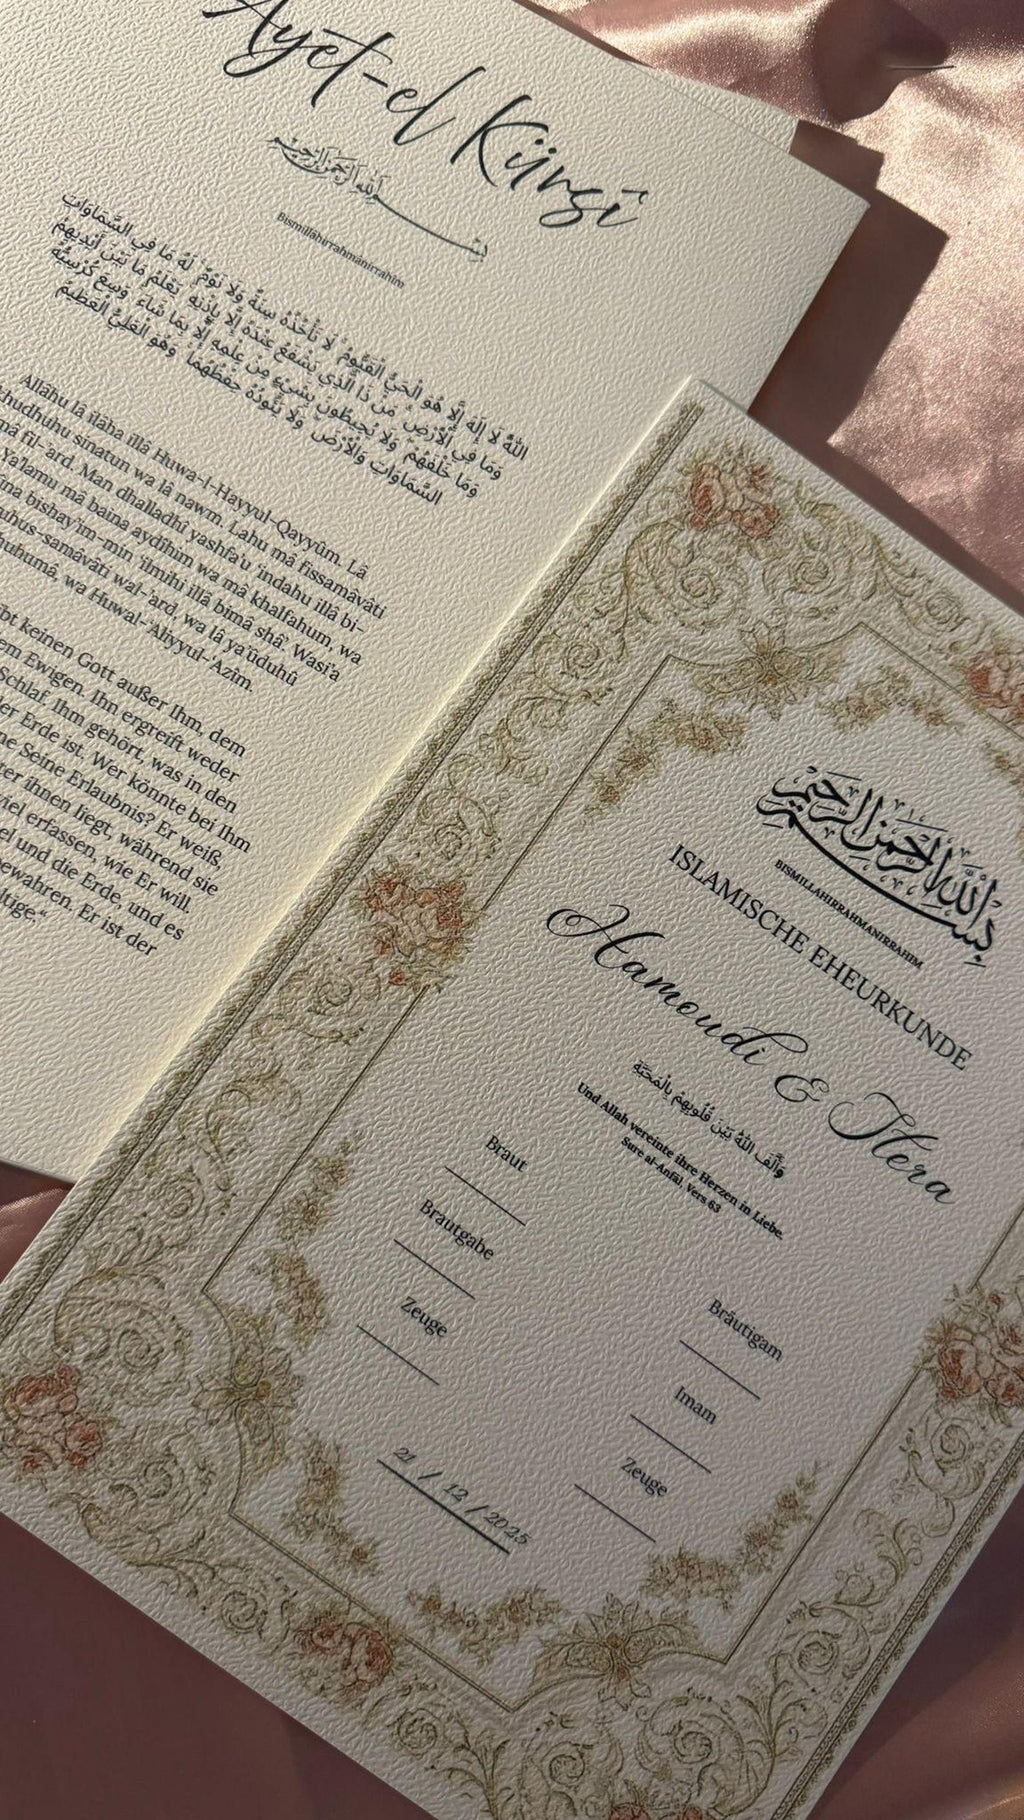 Ayet-el Kürsî
بِسْمِ اللهِ الرَّحْمٰنِ الرَّحِيْمِ
Bismillâhirrahmânirrahîm
اللهُ لَا إِلَهَ إِلَّا هُوَ الْحَيُّ الْقَيُّومُ لَا تَأْخُذُهُ سِنَةٌ وَلَا نَوْمٌ لَهُ مَا فِي السَّمَاوَاتِ
وَمَا فِي الْأَرْضِ مَنْ ذَا الَّذِي يَشْفَعُ عِنْدَهُ إِلَّا بِإِذْنِهِ يَعْلَمُ مَا بَيْنَ أَيْدِيهِمْ
وَمَا خَلْفَهُمْ وَلَا يُحِيطُونَ بِشَيْءٍ مِنْ عِلْمِهِ إِلَّا بِمَا شَاءَ وَسِعَ كُرْسِيُّهُ
السَّمَاوَاتِ وَالْأَرْضَ وَلَا يَئُودُهُ حِفْظُهُمَا وَهُوَ الْعَلِيُّ الْعَظِيمُ
Allâhu lâ ilâha illâ Huwa-l-Hayyul-Qayyûm. Lâ
sinatun wa lâ nawm. Lahu mâ fissamâvâti
fil-'ard. Man dhalladhî yashfa'u 'indahu illâ bi-
Ya'lamu mâ baina aydîhim wa mâ khalfahum, wa
bishay'im-min 'ilmihi illâ bimâ shâ'. Wasi'a
samâvâti wal-'ard, wa lâ ya'ûduhû
wa Huwal-'Aliyyul-'Azîm.
keinen Gott außer Ihm, dem
Ewigen. Ihn ergreift weder
Schlaf. Ihm gehört, was in den
der Erde ist. Wer könnte bei Ihm
Seine Erlaubnis? Er weiß,
ihnen liegt, während sie
viel erfassen, wie Er will.
und die Erde, und es
bewahren. Er ist der
بِسْمِ اللهِ الرَّحْمٰنِ الرَّحِيْمِ
BISMILLAHIRRAHMANIRRAHIM
ISLAMISCHE EHEURKUNDE
Hamoudi & Hera
وَأَلَّفَ اللهُ بَيْنَ قُلُوبِهِمْ بِالْمَحَبَّةِ
Und Allah vereinte ihre Herzen in Liebe.
Sure al-Anfâl, Vers 63
Braut
Bräutigam
Brautgabe
Imam
Zeuge
Zeuge
21 / 12 / 2025